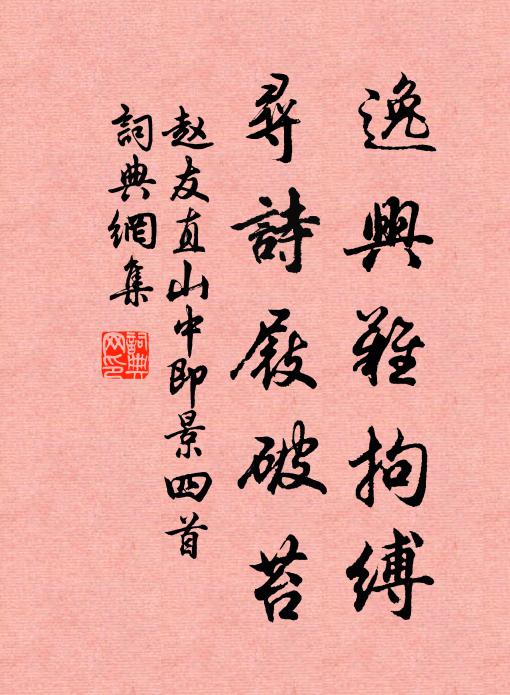 逸興難拘縛
尋詩屐破苔
赵友直山中即景四首
詞典網集
詞典
网印